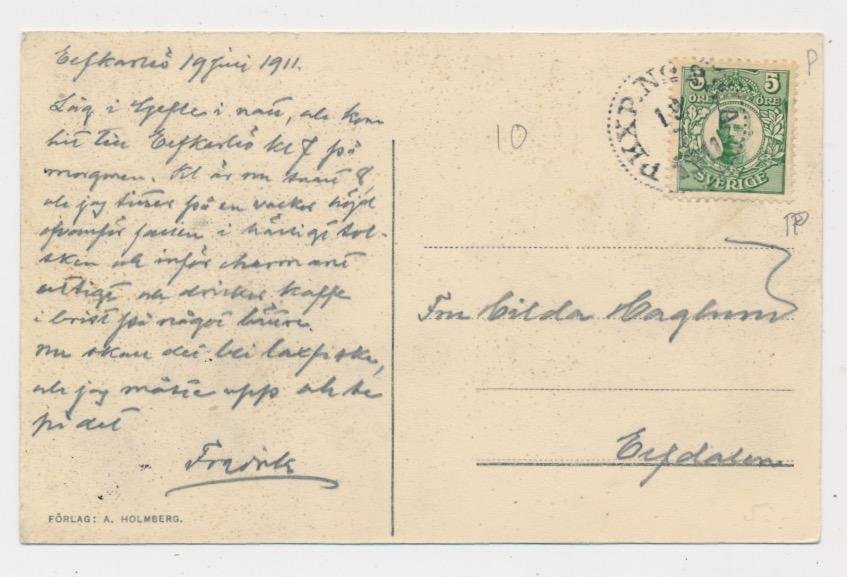 Elfkarleö 19 juni 1911.
Låg i Gefle i natt, och kom
hit till Elfkarleö kl 7 på
morgonen. Kl är nu snart 8,
och jag sitter på en vacker höjd
ofvanför fallen i härligt sol-
sken och inför charmant
utsigt och dricker kaffe
i brist på något bättre.
Nu skall det bli laxfiske,
och jag måste upp och se
på det
Fredrik
FÖRLAG: A. HOLMBERG.
10
P
PKXP.NO
19
5 5
ÖRE ÖRE
SVERIGE
PP
Fru Hilda Haglund
Elfdalen